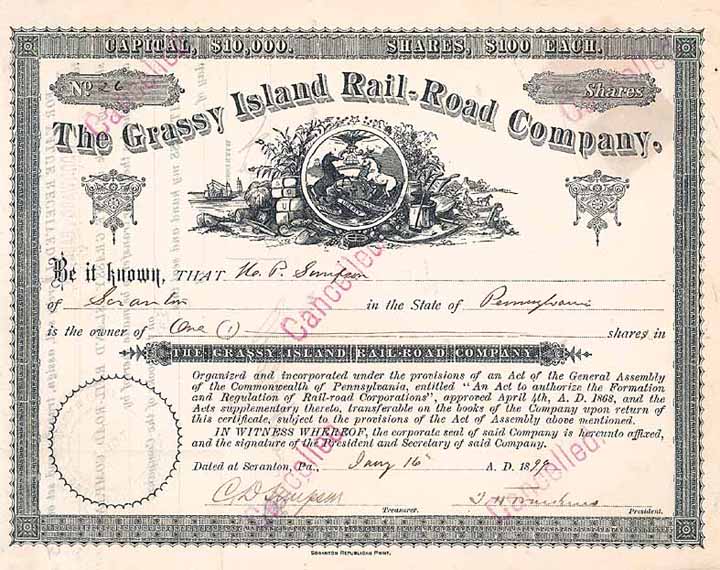 CAPITAL, $10,000. SHARES, $100 EACH.
No 26 Shares
The Grassy Island Rail-Road Company.
Be it known, THAT H. P. Simpson
of Scranton in the State of Pennsylvania
is the owner of One (1) shares in
THE GRASSY ISLAND RAIL-ROAD COMPANY
Organized and incorporated under the provisions of an Act of the General Assembly
of the Commonwealth of Pennsylvania, entitled "An Act to authorize the Formation
and Regulation of Rail-road Corporations", approved April 4th, A. D. 1868, and the
Acts supplementary thereto, transferable on the books of the Company upon return of
this certificate, subject to the provisions of the Act of Assembly above mentioned.
IN WITNESS WHEREOF, the corporate seal of said Company is hereunto affixed,
and the signature of the President and Secretary of said Company.
Dated at Scranton, Pa., Jany 16 A. D. 1899
C D Simpson
Treasurer. President.
SCRANTON REPUBLICAN PRINT.
Cancelled
Cancelled
Cancelled
Cancelled
Cancelled